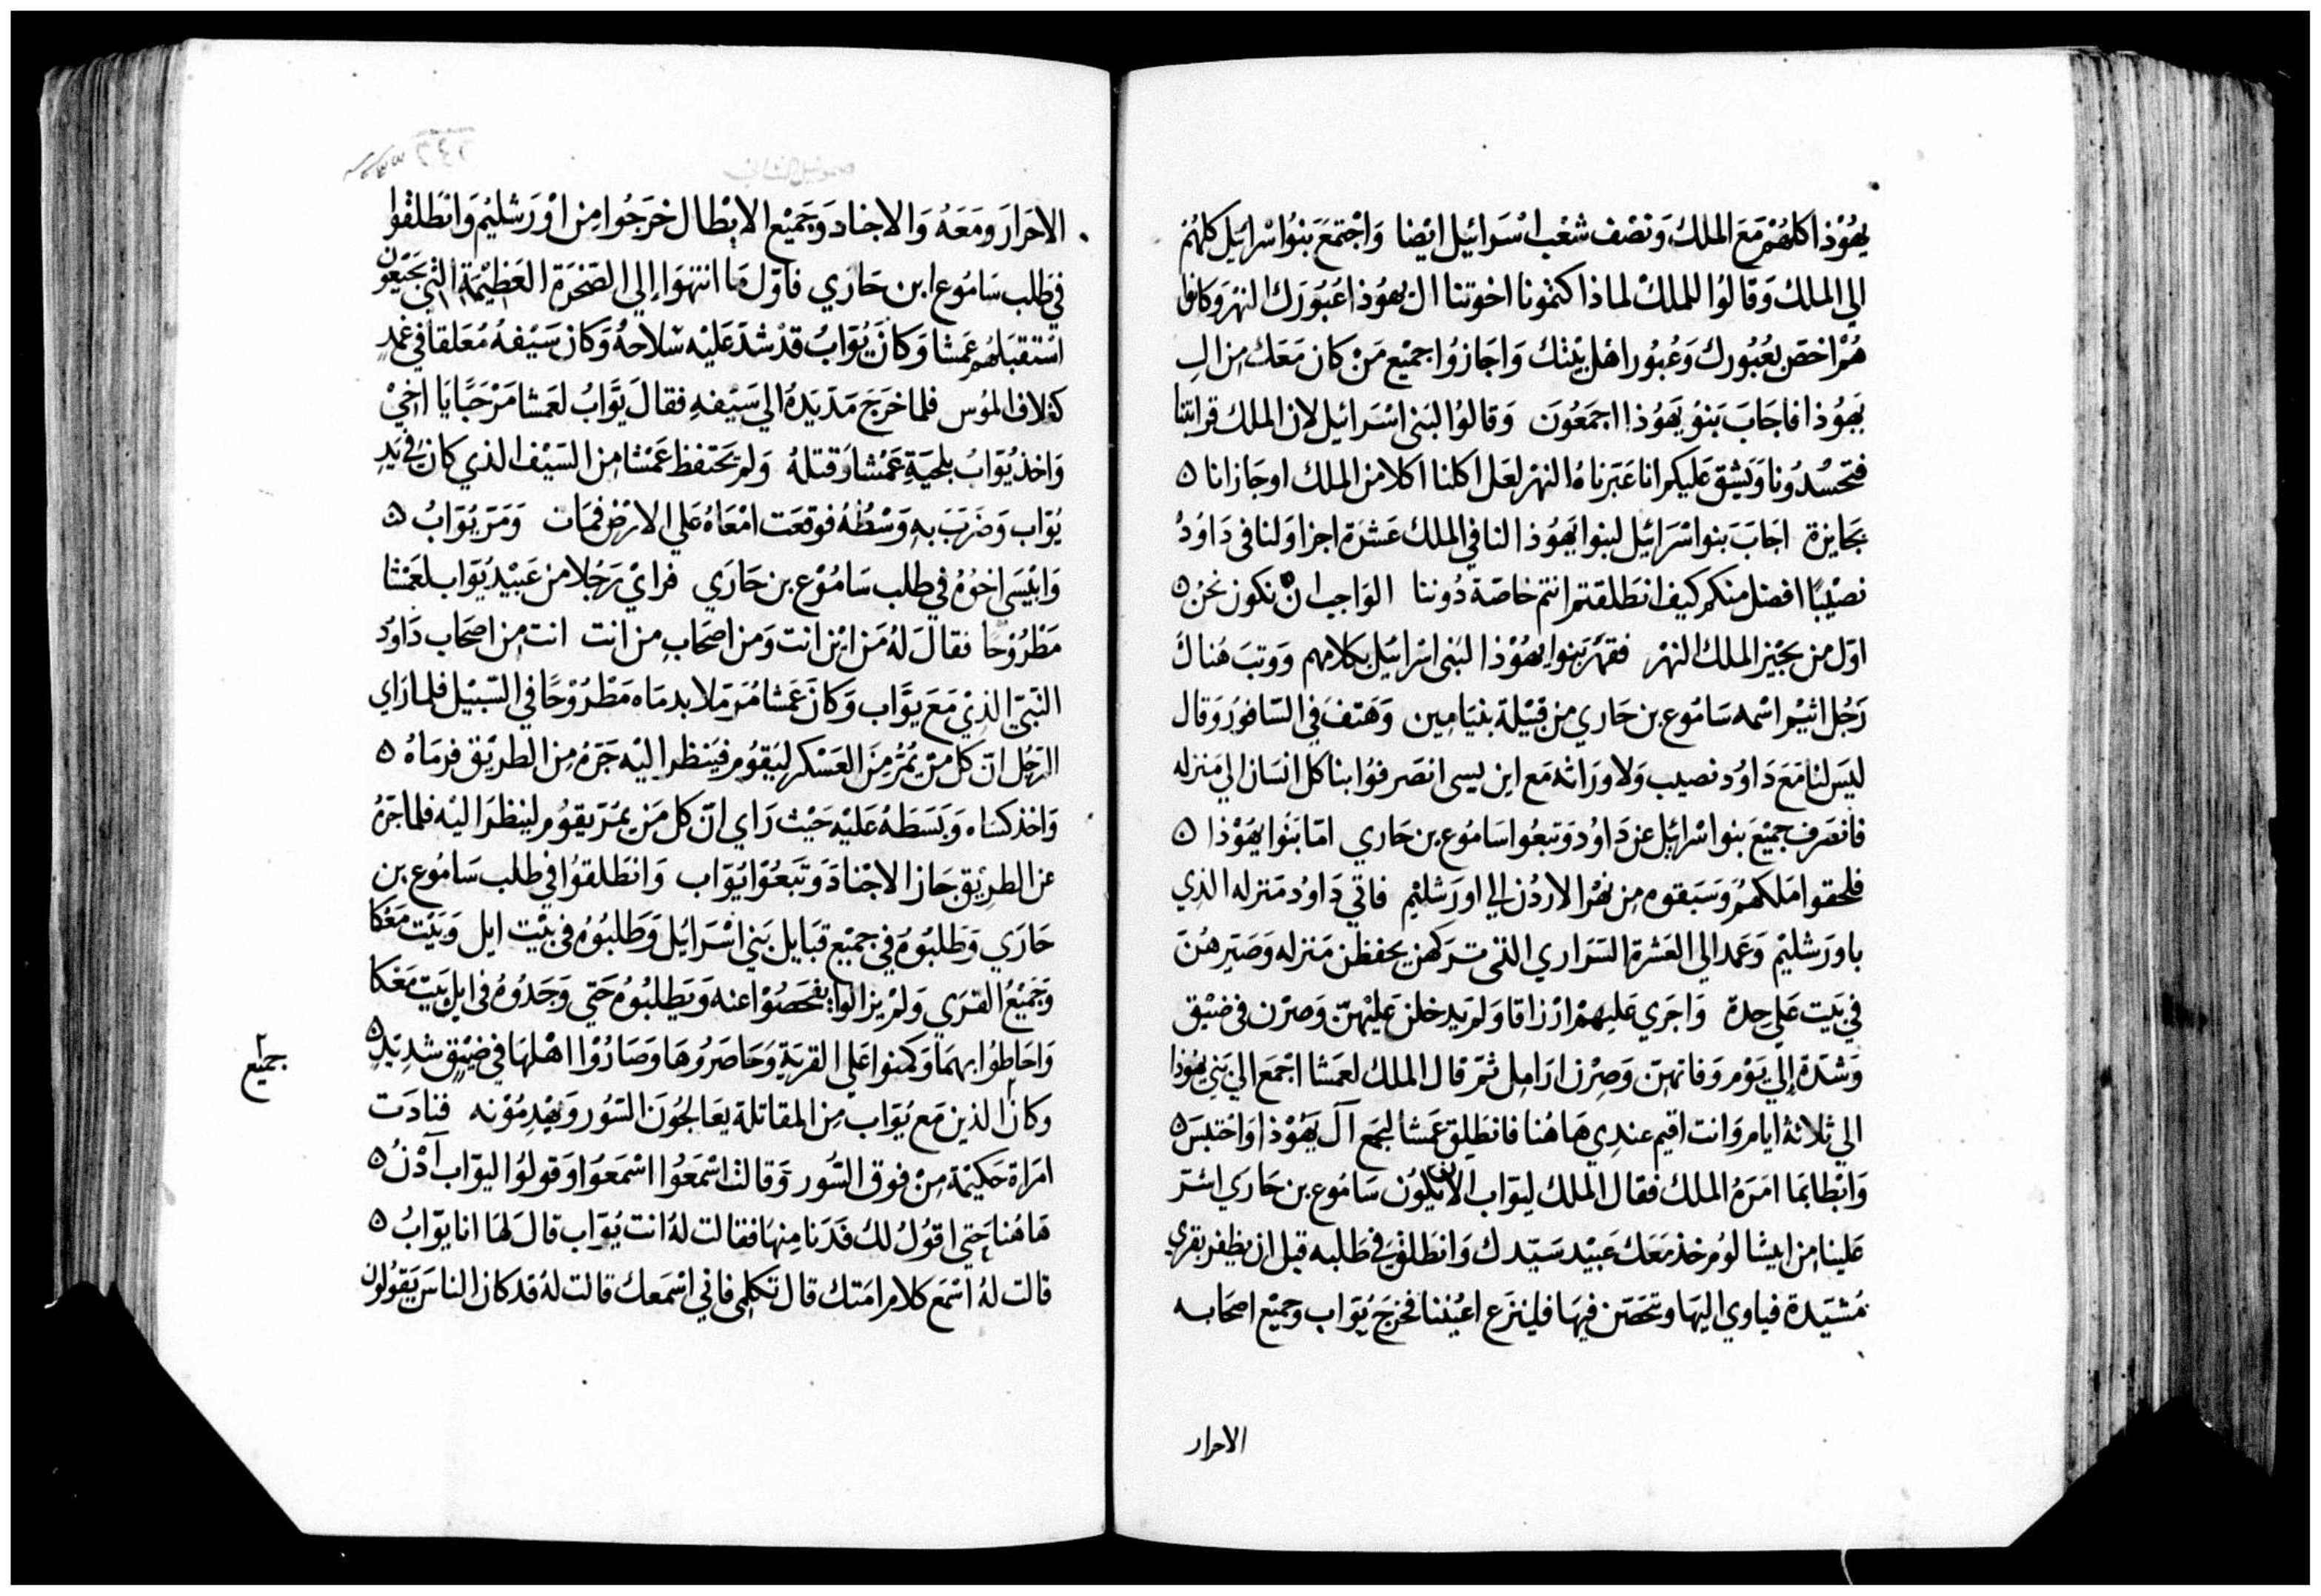 يهُوْذا كلهُمْ مَعَ الملك وَنصْف شعْب اسْرَائيل ايْضا وَاجْتمَعَ بَنُوا اسْرائِيل كلهُمْ
الي الملك وَقالوُا للملكْ لماذا كتمُونا اخوتنا ال يهوُذا عُبُوَرَك النهْرَ وَكانوُا
هُمْ اخصّ بعُبُورك وَعُبوُر اهل بيْتك وَاجَازوُا جميْع مَنْ كان مَعَك من الِ
يَهُوُذا فاجَابَ بَنوُ يَهوُذا اجمَعُونَ وَقالوا لبَني اسْرَائيل لان الملك قرابتنا
فتحْسُدُونا وَيشق عَليكم انا عَبَرناهُ النهْر لعَل اكلنا اكلا من الملك او جَازانا
بجَايزة اجَابَ بَنوا اسْرَائيل لبنوا يهُوُذا لنا في الملك عَشرَة اجزا وَلنا في دَاوُدُ
نصيْبًا افضل منكم كيف انطلقتم انتم خاصّة دُوننا الوَاجب ان نكون نحنُ
اوّل من يجْيز الملك النهْر فقهَرَ بَنوا يهُوْذا لبَني اسْرائيْل بكلامهم وَوثبَ هُناكَ
رَجُل اثيْم اسْمه سَامُوع بن حَاري من قبيْلة بنيَامين وَهَتفَ في السّافوُر وَقال
ليَس لنا مَعَ دَاوُد نصيب وَلا ورَاثه مَع ابن يسى انصَرفوُا بنا كل انسَان الي مَنزله
فانصَرف جميْعَ بنوا اسْرَائِيل عن دَاوُد وَتبعُوا سَامُوع بن حَاري امّا بَنُوا يهَوْذا
فلحقوا مَلكهُم وَسَبَقوه مِن نهْر الاردُن الي اورَشليْم فاتي دَاوُد مَنزله الذِي
باورَشليْم وَعَمد الي العَشرة السّرَاري اللاتي تركهن يحفظن مَنزله وَصَيّرهُنّ
في بَيت عَلي حِدة وَاجرَي عَليهمْ ارْزاقا وَلم يَدخلن عَليْهنّ وَصرْن في ضيْق
وَشدّة اِلي يَوْم وَفاتهنّ وَصِرْن ارَامِل ثمّ قال الملك لعَمشا اجْمَع الي بَني يهُوذا
الي ثلاثة ايام وَانت اقيم عندِي هَاهُنا فانطلِق عَمشا ليجمَع آل يَهُوْذا وَاحْتبسَ
وَابْطا بمَا امَرَهُ الملك فقال الملك ليوَاب الان يَكوُن سَامُوع بن حَارَي اشرّ
عَلينا من ابيشالوُم خذ مَعَك عَبيْد سَيّدك وَانطلق في طَلبه قبل ان يظفر بقري
مُشيّدة فياوي اليهَا ويتحَصّن فيهَا فلينزَع اعيُننا فخرَجَ يُوَاب وجميْع اصحَابه
الاحرار
الاحَرارَ وَمَعَهُ وَالاجناد وَجَميْع الابْطال خرَجُوا مِن اوْرَشليْم وَانطَلقوُا
في طلب سَامُوع ابن حَارَي فاوّل مَا انتهَوا اِلي الصّخرَة العَظيْمَة التي بجَبعُون
اسْتقبَلهُم عَمشا وَكانَ يُوَابُ قدْ شدّ عَليْه سْلاحهُ وَكان سَيْفهُ مُعَلقا في غمْدٍ
كغلاف الموُس فلما خرَجَ مَدّ يَدهُ الي سَيْفهِ فقالَ يوَّابُ لعَمشا مَرْحَبًا يَا اخِيْ
وَاخذ يُوَابُ بلحيَةِ عَمْشا وَقتلهُ وَلم يَحتفظ عَمْشا مِن السّيْف الذي كان في يَدِ
يُوّاب وَضرَبَ بهِ وَسْطُهُ فوَقعَت امْعَاهُ عَلي الارْض فمَات وَمَرّ يُوّابُ
وَابيْسَي اخوُهُ في طلب سَامُوْع بن حَارَي فرايْ رَجُلا من عَبيْد يُوّاب لعَمْشا
مَطْرُوْحًا فقالَ لهُ مَن ابن انت وَمن اصحَابِ من انت انت من اصحَاب دَاوُد
النّبيّ الذيْ مَعَ يوَّاب وَكانَ عَمشا مُرَمّلا بدمَاه مَطْرُوْحًا في السّبيْل فلما رَاي
الرّجُل انّ كل منْ يمُرُّ مِنَ العَسْكر ليَقوُم فيَنظر اليْه جَرّهُ مِن الطريْق فرمَاهُ
وَاخذ كسَاه وَبَسَطهُ عَليْه حَيْث رَاي انّ كل مَن يمُرّ يقوُم لينظرَ اليْه فلما جَرّهُ
عن الطريْق جَاز الاجْنادَ وَتبَعُوا يُوَاب وَانطَلقوُا في طلب سَامُوع بن
حَارَي وَطلبُوْهُ في جميْع قبَايل بَني اسْرَايَل وَطَلبُوْهُ في بيْت ايل وَبَيْت مَعْكا
وَجَميْعُ القرَي وَلمْ يزالوا يفحَصُوْا عنه وَيَطلبُوْهُ حَتي وَجَدُوهُ في ابل بَيْت مَعْكا
وَاحَاطوُا بهمَا وَكمنوا عَلي القريَةِ وَحَاصَرُوهَا وَصَارُوْا اهْلهَا في ضيْقٍ شدِيْدٍ
وكان الذين مَع يُوَاب مِن المقاتلة يعَالجُونَ السّوُر وَيهْدِمُوْنه فنادَت
جميع
امرَاة حَكيْمَة مِنْ فوق السّوُر وَقالتْ اسْمَعُوا اسْمَعوُا وَقولوُا ليوّاب آدْنُ
هَاهُنا حَتي اقوُلُ لك فدَنا مِنهَا فقالت لهُ انت يُوّاب قالَ لهَا انا يوّابُ
قالت لهُ اسْمَع كلام امَتك قال تكلمي فاني اسْمَعك قالت لهُ قد كان الناسَ يقوُلون